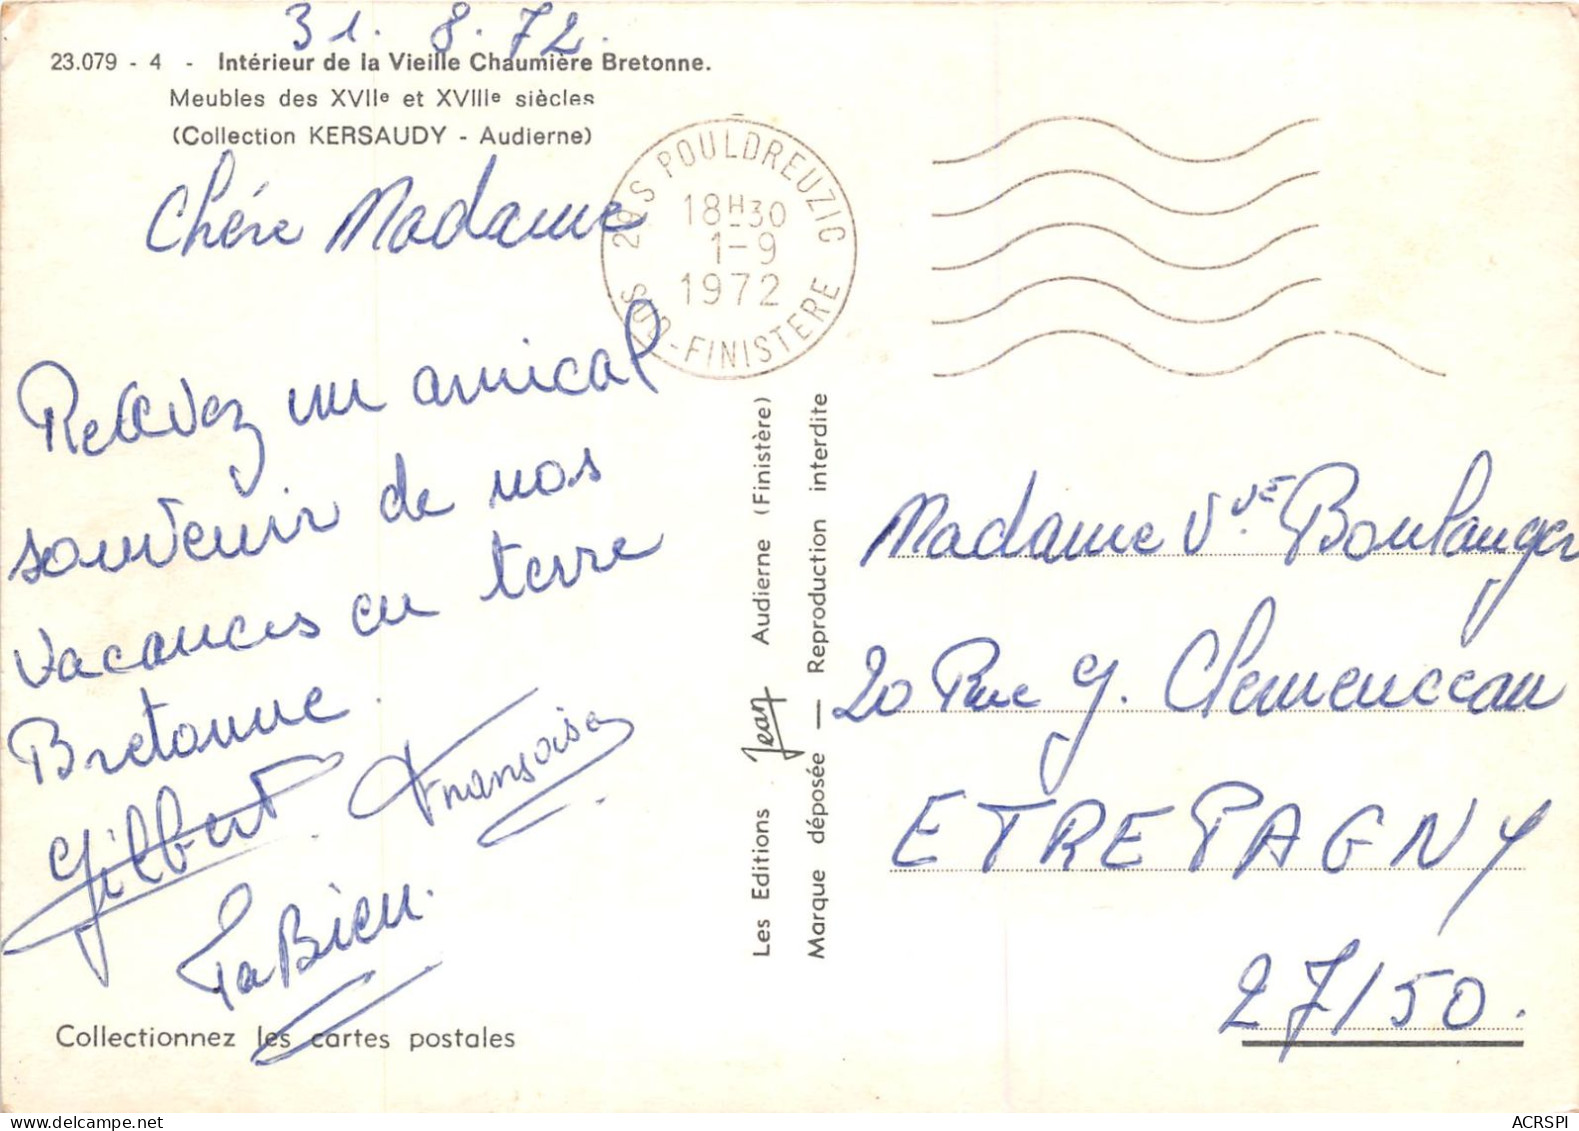 31. 8. 72.
23.079 - 4 - Intérieur de la Vieille Chaumière Bretonne.
Meubles des XVIIe et XVIIIe siècles
(Collection KERSAUDY - Audierne)
Chère Madame
Recevez un amical
souvenir de nos
vacances en terre
Bretonne.
Gilbert. Françoise.
FaBien.
Collectionnez les cartes postales
29 S POULDREUZIC
18H30
1-9
1972
SUD-FINISTERE
Les Editions Jean Audierne (Finistère)
Marque déposée — Reproduction interdite
Madame Vve Boulanger
20 Rue G. Clemenceau
ETREPAGNY
27150.
ACRSPI